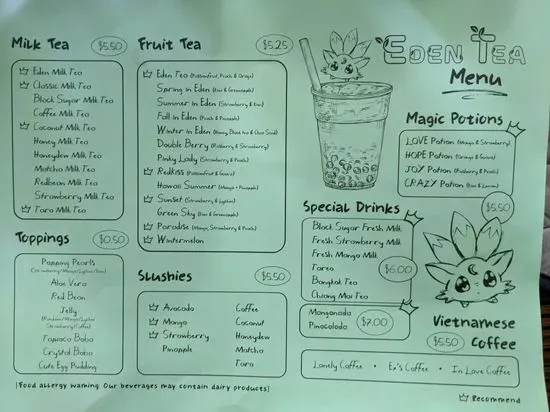 Milk Tea $5.50
Eden Milk Tea
Classic Milk Tea
Black Sugar Milk Tea
Coffee Milk Tea
Coconut Milk Tea
Honey Milk Tea
Honeydew Milk Tea
Matcha Milk Tea
Redbean Milk Tea
Strawberry Milk Tea
Taro Milk Tea
Toppings $0.50
Popping Pearls
(Strawberry/Mango/Lychee/
Aloe Vera
Red Bean
Jelly
(Rainbow/Mango/Lychee/
Strawberry/Coffee)
Tapioca Boba
Crystal Boba
Cute Egg Pudding
Fruit Tea $5.25
Eden Tea (Passionfruit, Peach & Orange)
Spring in Eden (Kiwi & Pineapple)
Summer in Eden (Strawberry & Kiwi)
Fall in Eden (Peach & Pineapple)
Winter in Eden
Double Berry (Raspberry & Strawberry)
Pinky Lady (Strawberry & Peach)
Redkiss (Passionfruit & Guava)
Hawaii Summer (Mango & Pineapple)
Sunset (Strawberry & Lychee)
Green Sky (Kiwi & Pineapple)
Paradise (Mango, Strawberry & Peach)
Wintermelon
Slushies $5.50
Avocado
Mango
Strawberry
Pineapple
Coffee
Coconut
Honeydew
Matcha
Taro
Eden Tea
Menu
Magic Potions
LOVE Potion (Mango & Strawberry)
HOPE Potion (Orange & Guava)
JOY Potion (Raspberry & Peach)
CRAZY Potion
$5.50
Special Drinks
Black Sugar Fresh Milk
Fresh Strawberry Milk
Fresh Mango Milk
Tareo
Bangkok Tea
Chiang Mai Tea
$6.00
Mangonada
Pinacolada
$7.00
Vietnamese
$5.50 Coffee
Lonely Coffee • Ex's Coffee • In Love Coffee
[Food allergy warning: Our beverages may contain dairy products]
Recommend